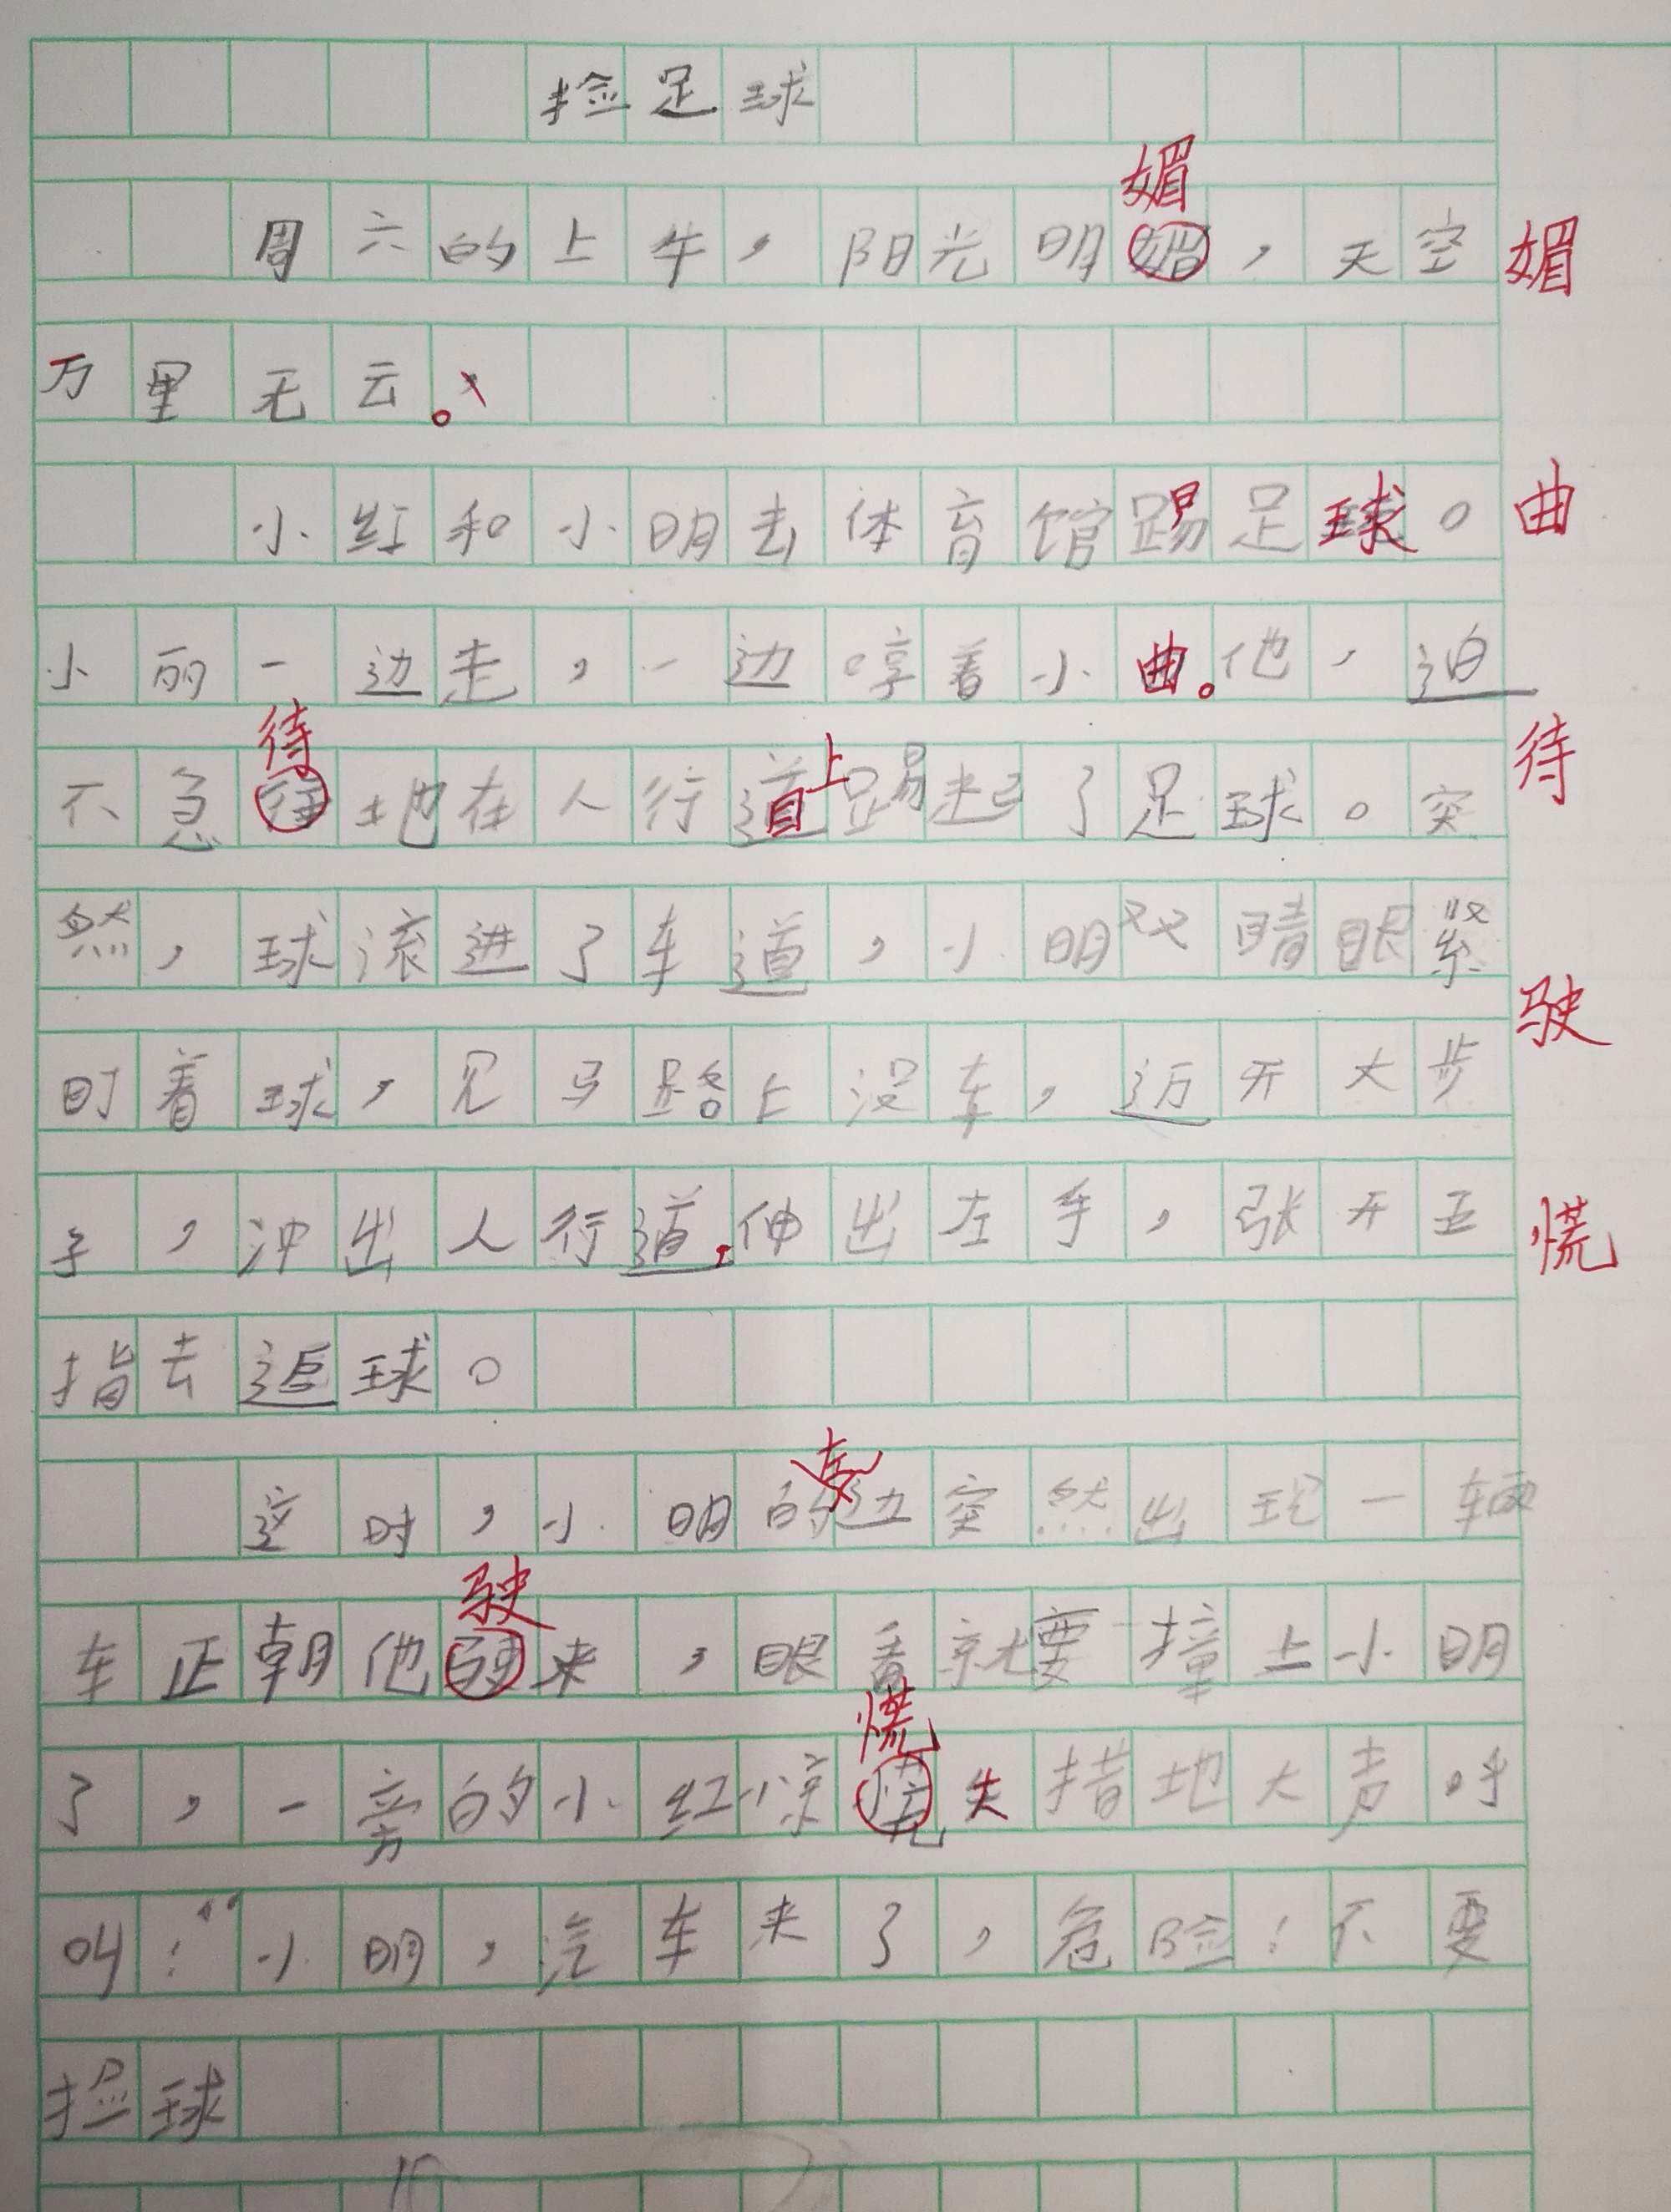 捡足球
媚
周六的上午，阳光明媚，天空 媚
万里无云。
小红和小明去体育馆踢足球。 曲
小丽一边走，一边哼着小曲。他，迫
待
不急待地在人行道上踢起了足球。突 待
然，球滚进了车道，小明双睛眼紧
盯着球，见马路上没车，迈开大步 驶
子，冲出人行道，伸出左手，张开五 慌
指去追球。
这时，小明的左边突然出现一辆
驶
车正朝他驶来，眼看就要撞上小明
慌
了，一旁的小红惊慌失措地大声呼
叫：“小明，汽车来了，危险！不要
捡球